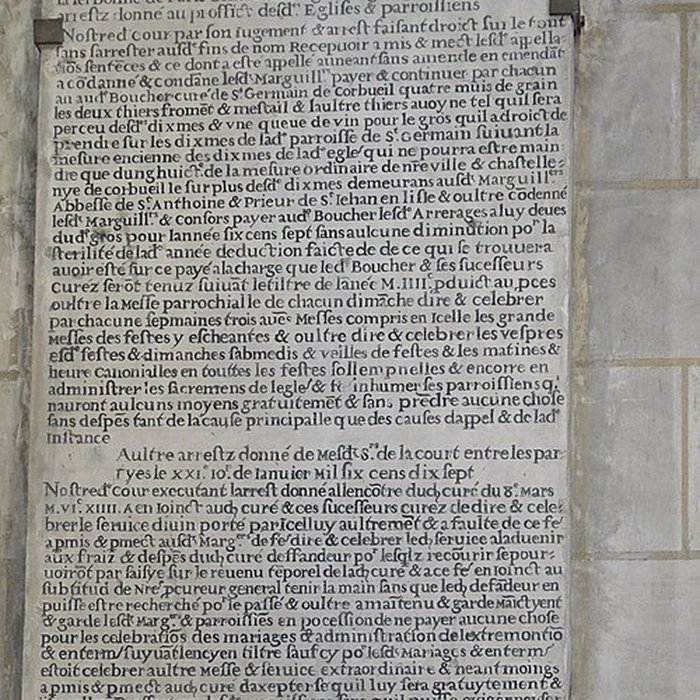 arrestz donné au proffict desdˢ Eglises & parroissiens
Nostred' cour par son iugement & arrest faisant droict sur le tout
sans sarrester ausdˢ fins de nom Recepuoir a mis & mect lesdˢ appella-
tiõs sentẽces & ce dont a este appelle au neant sans amende en emẽdãt
a cõdanné & condãne lesdˢ Marguillʳˢ payer & continuer par chacun
an audˢ Boucher curé de Sᵗ Germain de Corbueil quatre muis de grain
les deux thiers fromẽt & mestail & laultre thiers auoyne tel quil sera
perceu desdˢ dixmes & vne queue de vin pour le gros quil a droict de
prendre sur les dixmes de ladˢ parroisse de Sᵗ Germain suiuant la
mesure encienne des dixmes de ladˢ egleˢ qui ne pourra estre main-
dre que dung huictᵉ de la mesure ordinaire de nrẽ ville & chastelle-
nye de corbueil le surplus desdˢ dixmes demeurans ausdˢ Marguillʳˢ
Abbesse de Sᵗ Anthoine & Prieur de Sᵗ Iehan en lisle & oultre cõdenné
lesdˢ Marguillʳˢ & Consors payer audˢ Boucher lesdˢ Arrerages a luy deues
dudˢ gros pour lannée six cens sept sans aulcune diminution poʳ la
sterilité de ladˢ année deduction faicte de de ce qui se trouuera
auoir esté sur ce payé a la charge que ledˢ Boucher & ses sucesseurs
Curez serõt tenuz suiuãt le tiltre de lãneé M.IIIIᶜ pduict au pces
oultre la Messe parrochialle de chacun dimãche dire & celebrer
par chacune sepmaines trois auẽˢ Messes compris en Icelle les grande
Messes des festes y escheantes & oultre dire & celebrer les vespres
esdˢ festes & dimanches sabmedis & veilles de festes & les matines &
heure Canonialles en touttes les festes sollempnelles & encorre en
administrer les sacremens de legleˢ & inhumer ses parroissiens q'
nauront aulcuns moyens gratuitemẽt & sans prẽdre aucune chose
sans despẽs tant de la cause principalle que des causes dappel & de ladˢ
Instance
Aultre arrestz donné de Mesdˢ Sʳˢ de la court entre les par-
tyes le XXIᵉ Ioʳ de Ianuier Mil six cens dix sept
Nostredˢ Cour executant larrest donné allencõtre dudˢ curé du 8ᵉ Mars
M.VIᶜ.XIIII. A enIoinct audˢ curé & ces sucesseurs curez de dire & cele-
brer le seruice diuin porté par Icelluy aultremẽt & a faulte de ce feˢ
a pmis & pmect ausdˢ Margʳˢ de feˢ dire & celebrer ledˢ seruice aladuenir
aux fraiz & despẽs dudˢ curé deffandeur poʳ lesqlz recourir se pour-
uoirõt par saisye sur le reuenu tẽporel de ladˢ curé & a ce feˢ enIoinct au
substitud de Nreˢ pcureur general tenir la main sans que ledˢ defãdeur en
puisse estre recherché poʳ le passé & oultre a maĩtenu & garde Maĩctyent
& garde lesdˢ Margʳˢ & parroissiẽs en pocession de ne payer aucune chose
pour les celebratiõs des mariages & administration de lextremontiõ
& entermˢ suyuãt lencyen tiltre sauf cy poʳ lesdˢ Mariages & entermˢ
estoit celebrer aultre Messe & seruice extraordinaire & neantmoings
a pmis & pmect audˢ curé daxepter se quil luy sera gratuytement &